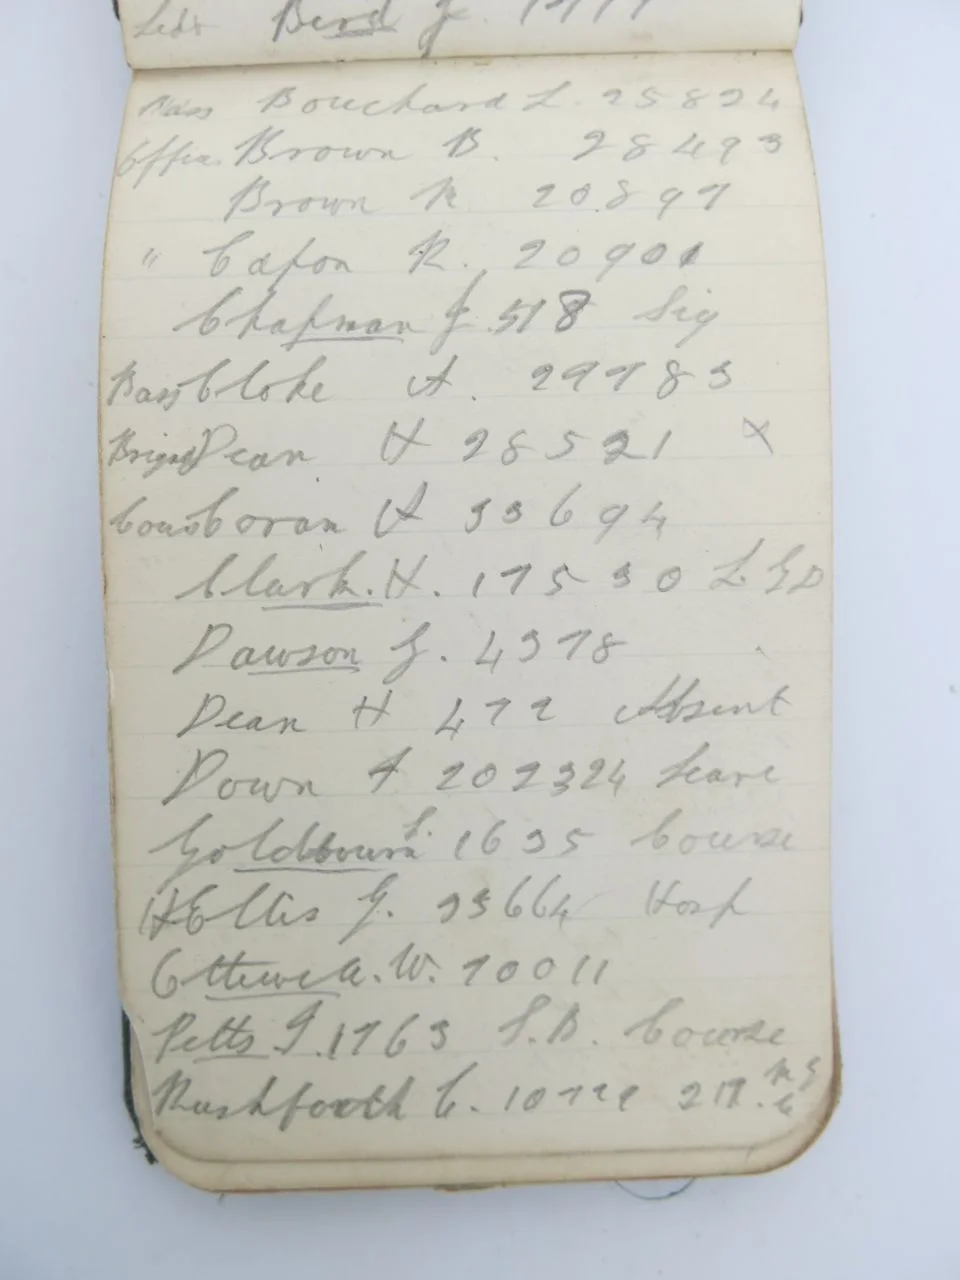 Beird J.
Bass Bouchard L. 25824
Offica Brown B. 28493
Brown R 20897
" Capon R. 20901
Chapman J. 518 Sig
Bass Cloke A. 29783
Brigad Dean H 28521 X
Cons Coran A 33694
Clark. H. 17530 L.G.D
Dawson G. 4378
Dean H 472 Absent
Down F 202324 Leave
Goldbourn L. 1635 Course
H Ellis G. 33664 Hosp
Ottewe A. W. 10011
Petts J. 1763 S.B. Course
Rushforth C. 217.